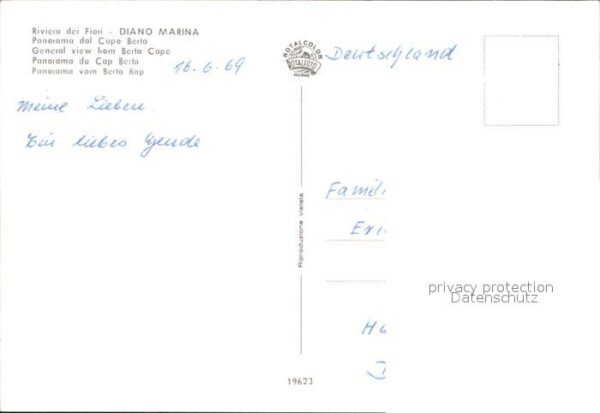 Riviera dei Fiori - DIANO MARINA
Panorama dal Capo Berta
General view from Berta Cape
Panorama du Cap Berta
Panorama vom Berta Kap
16.6.69
Meine Lieben
Ein liebes
ROTALCOLOR
ROTALFOTO
MILANO
Deutschland
Famili
Eri
Riproduzione vietata
privacy protection
Datenschutz
19623